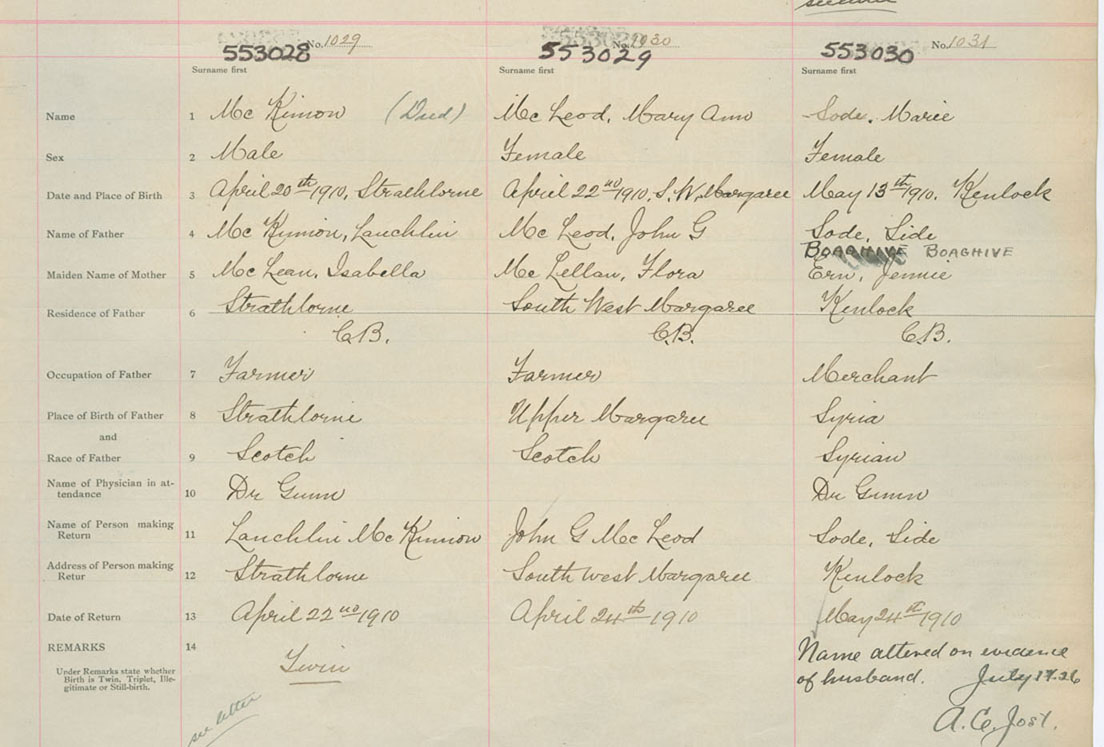 553028 No. 1029 553029 No. 1030 553030 No. 1031
Surname first Surname first Surname first
Name 1 Mc Kinnon (Died) Mc Leod, Mary Ann Sode, Marie
Sex 2 Male Female Female
Date and Place of Birth 3 April 20th 1910, Strathlorne April 22nd 1910, S.W. Margaree May 13th 1910, Kenlock
Name of Father 4 Mc Kinnon, Lauchlin Mc Leod, John G Sode, Side
BOAGHIVE
Maiden Name of Mother 5 Mc Lean, Isabella Mc Lellan, Flora Ern, Jennie
Residence of Father 6 Strathlorne South West Margaree Kenlock
C.B. C.B. C.B.
Occupation of Father 7 Farmer Farmer Merchant
Place of Birth of Father 8 Strathlorne Upper Margaree Syria
and
Race of Father 9 Scotch Scotch Syrian
Name of Physician in at-
tendance 10 Dr Gunn Dr Gunn
Name of Person making
Return 11 Lauchlin Mc Kinnon John G Mc Leod Sode, Side
Address of Person making
Retur 12 Strathlorne South West Margaree Kenlock
Date of Return 13 April 22nd 1910 April 24th 1910 May 24th 1910
REMARKS 14
Under Remarks state whether
Birth is Twin, Triplet, Ille-
gitimate or Still-birth.
Twin
see letter
Name altered on evidence
of husband. July 17.26
A.C. Jost.